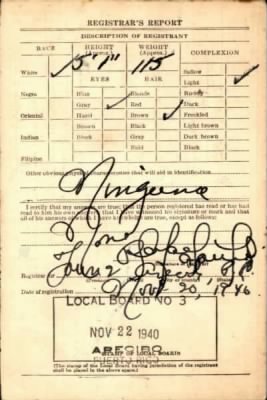 REGISTRAR'S REPORT
DESCRIPTION OF REGISTRANT
RACE HEIGHT (Approx.) WEIGHT (Approx.) COMPLEXION
5' 1" 115
White Sallow
EYES HAIR Light
Negro Blue Blonde Ruddy
Gray Red Dark
Oriental Hazel Brown Freckled
Brown Black Light brown
Indian Black Gray Dark brown
Bald Black
Filipino
Other obvious physical characteristics that will aid in identification
Ninguna
I certify that my answers are true; that the person registered has read or has had read to him his own answers; that I have witnessed his signature or mark and that all of his answers of which I have knowledge are true, except as follows:
None
Registrar for
Nov. 20, 1946
LOCAL BOARD NO 3
NOV 22 1940
ARECIBO
PUERTO RICO
STAMP OF LOCAL BOARD
(The stamp of the Local Board having jurisdiction of the registrant shall be placed in the above space.)